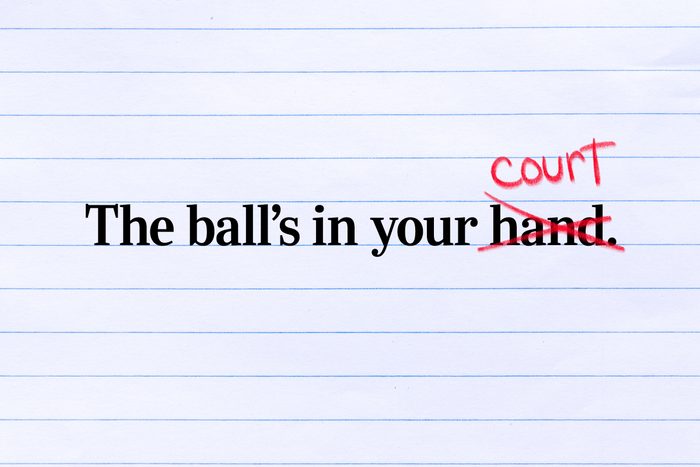 court
The ball's in your hand.